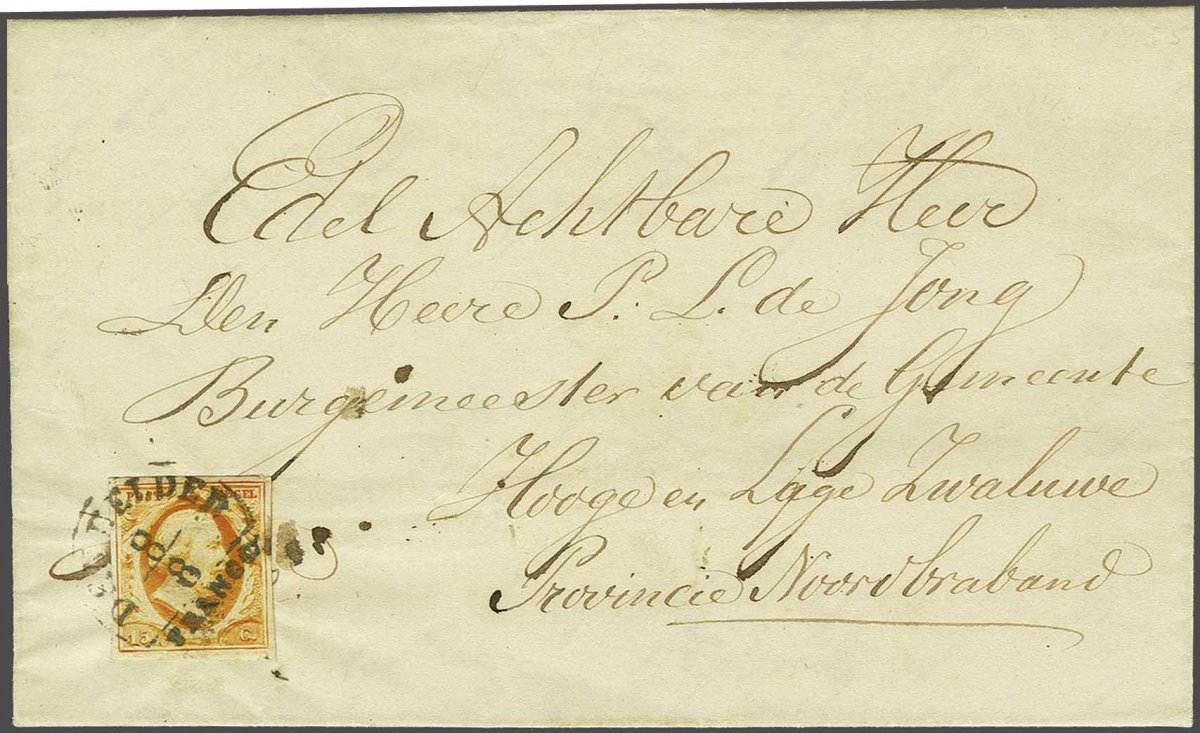 Edel Achtbare Heer
Den Heere P. L. de Jong
Burgemeester van de Gemeente
Hooge en Lage Zwaluwe
Provincie Noordbraband
POST ZEGEL
DEN HELDER
8/8
FRANCO
15 C.